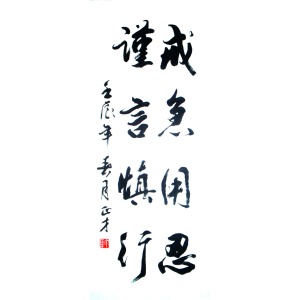 戒急用忍
謹言慎行
壬辰年春月正才